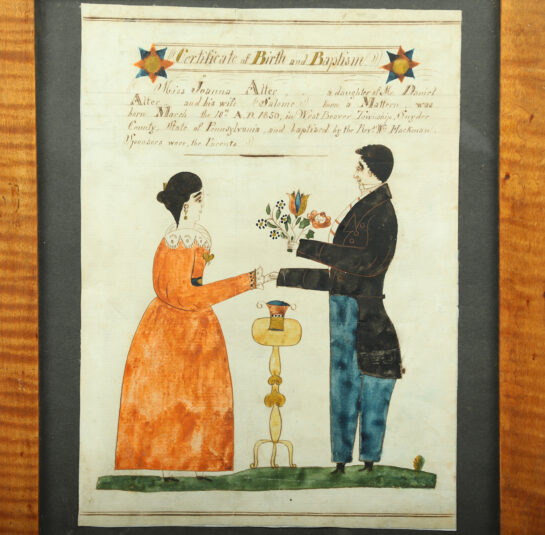 Certificate of Birth and Baptism.
Miss Joanna Alter, a daughter of Mr. Daniel
Alter and his wife Salome born a Mattern, was
born March the 18th A.D. 1830, in West Beaver Township, Snyder
County, State of Pennsylvania, and baptised by the Revd. Wm. Hackman.
Sponsors were, the Parents.